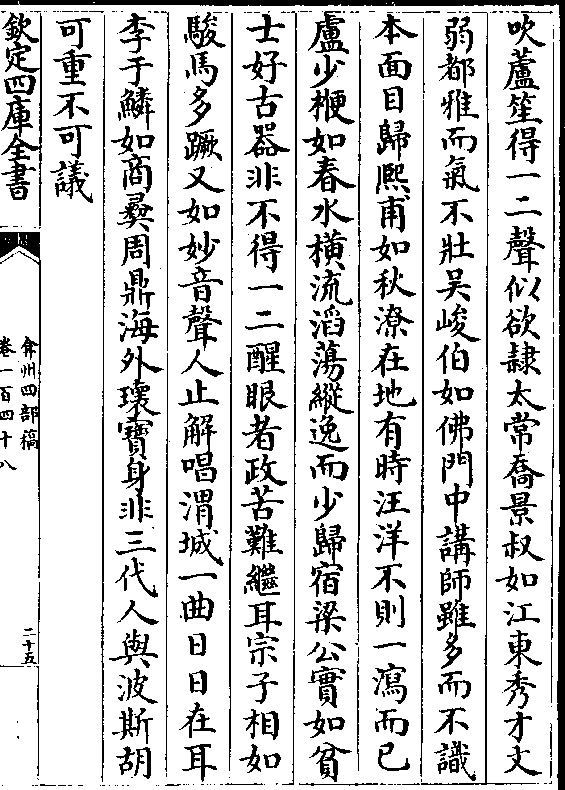 吹蘆笙得一二聲似欲隷太常喬景叔如江東秀才文
弱都雅而氣不壯吴峻伯如佛門中講師雖多而不識
本面目歸熙甫如秋潦在地有時汪洋不則一瀉而已
盧少楩如春水横流滔蕩縱逸而少歸宿梁公實如貧
士好古器非不得一二醒眼者政苦難繼耳宗子相如
駿馬多蹶又如妙音聲人止解唱渭城一曲日日在耳
李于鱗如商彛周鼎海外瓌寶身非三代人與波斯胡
可重不可議
欽定四庫全書
弇州四部稿
卷一百四十八
二十五